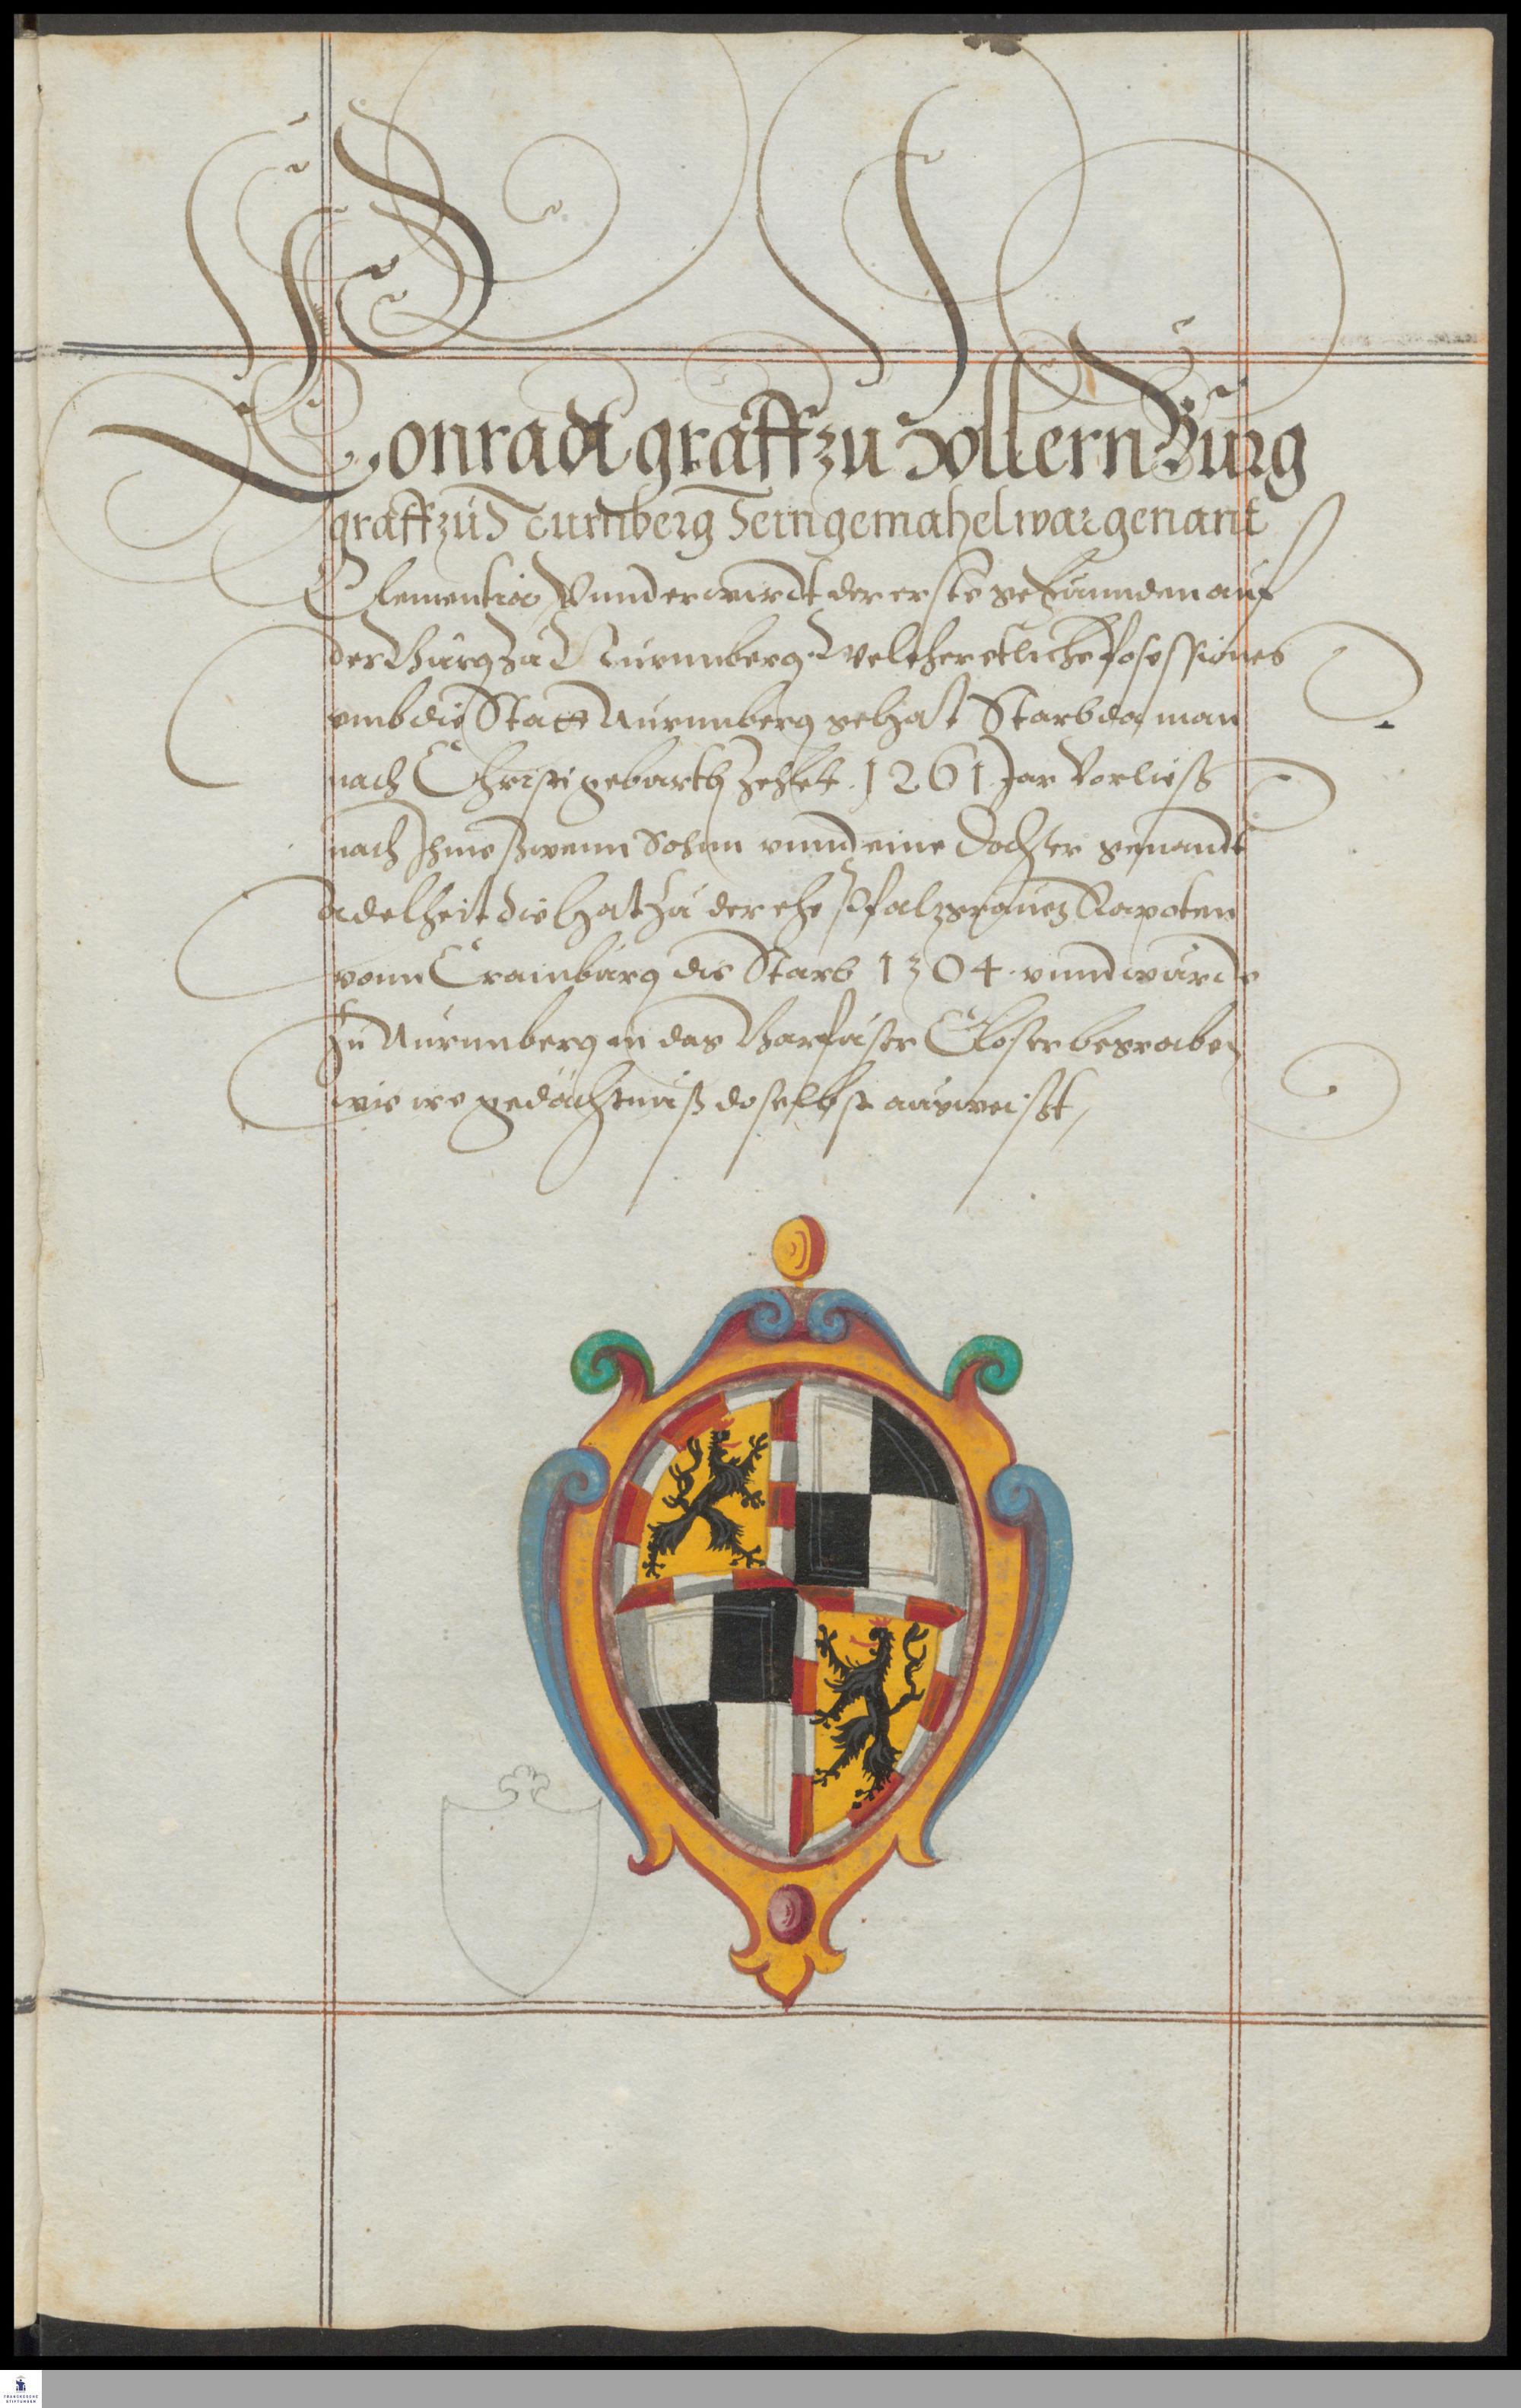 Conradt graff zu Zollern Burg
graff zu Nurnberg Sein gemahel war genant
Clementia Vnnd er wirdt der erste gefunnden auf
der Burg zu Nurnnberg. Welcher etliche posessiones
vmb die Statt Nurnnberg gehat Starb da man
nach Christi geburth zehlet. 1261 Jar Verließ
nach Ihme zwenn Sohnn vnnd eine Dochter genandt
Adelheit die hat zu der ehe Pfalzgrauen Rapoten
vonn Crainburg die Starb 1304. vnnd wurde
Zu Nurnnberg in das Barfuser Closter begraben
wie ire gedächtnuß doselbst außweist,
FRANCKESCHE
STIFTUNGEN